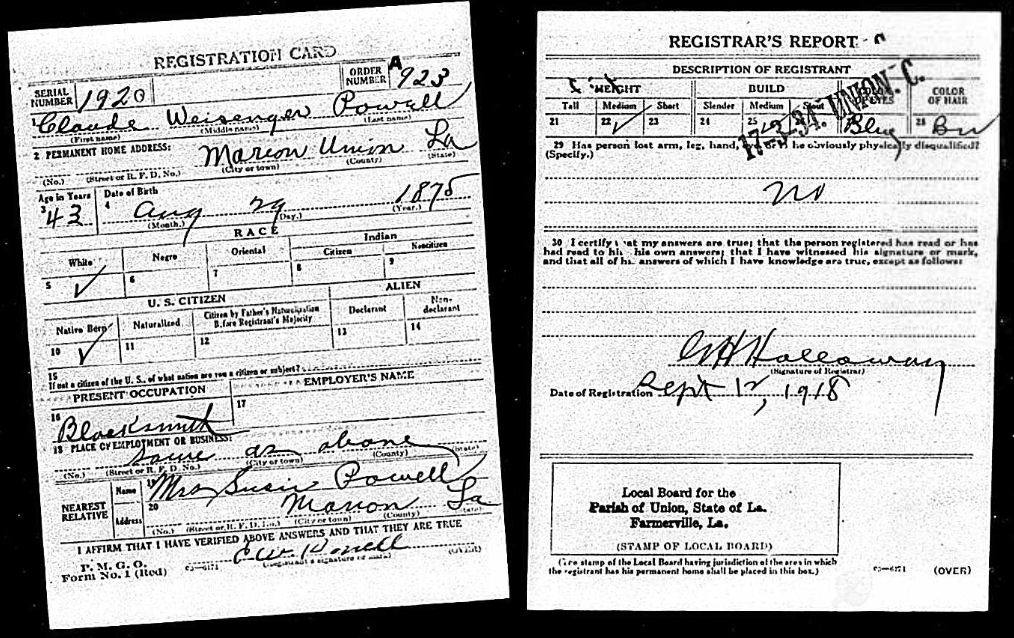 REGISTRATION CARD
SERIAL NUMBER 1920 ORDER NUMBER A 923
Claude Weisenger Powell
(First name) (Middle name) (Last name)
2 PERMANENT HOME ADDRESS:
Marion Union La
(No.) (Street or R. F. D. No.) (City or town) (County) (State)
Age in Years Date of Birth
3 43 4 Aug 29 1875
(Month.) (Day.) (Year.)
RACE
White Negro Oriental Indian
Citizen Noncitizen
5 ✓ 6 7 8 9
U. S. CITIZEN ALIEN
Native Born Naturalized Citizen by Father's Naturalization Before Registrant's Majority Declarant Non-declarant
10 ✓ 11 12 13 14
15
If not a citizen of the U. S., of what nation are you a citizen or subject?
PRESENT OCCUPATION EMPLOYER'S NAME
16 17
Blacksmith
18 PLACE OF EMPLOYMENT OR BUSINESS:
Same as above
(No.) (Street or R. F. D. No.) (City or town) (County) (State)
NEAREST RELATIVE Name 19 Mrs Susie Powell
Address 20 Marion La
(No.) (Street or R. F. D. No.) (City or town) (County) (State)
I AFFIRM THAT I HAVE VERIFIED ABOVE ANSWERS AND THAT THEY ARE TRUE
P. M. G. O.
Form No. 1 (Red) 03—6171 C W Powell (OVER)
(Registrant's signature or mark)
REGISTRAR'S REPORT
17-3-34. UNION. C.
DESCRIPTION OF REGISTRANT
HEIGHT BUILD COLOR OF EYES COLOR OF HAIR
Tall Medium Short Slender Medium Stout
21 22 ✓ 23 24 25 Blue 28 Bru
29 Has person lost arm, leg, hand, eye, or is he obviously physically disqualified?
(Specify.)
no
30 I certify that my answers are true; that the person registered has read or has
had read to him his own answers; that I have witnessed his signature or mark,
and that all of his answers of which I have knowledge are true, except as follows:
Holloway
(Signature of Registrar)
Date of Registration Sept 12, 1918
Local Board for the
Parish of Union, State of La.
Farmerville, La.
(STAMP OF LOCAL BOARD)
(The stamp of the Local Board having jurisdiction of the area in which
the registrant has his permanent home shall be placed in this box.)
03—6171 (OVER)